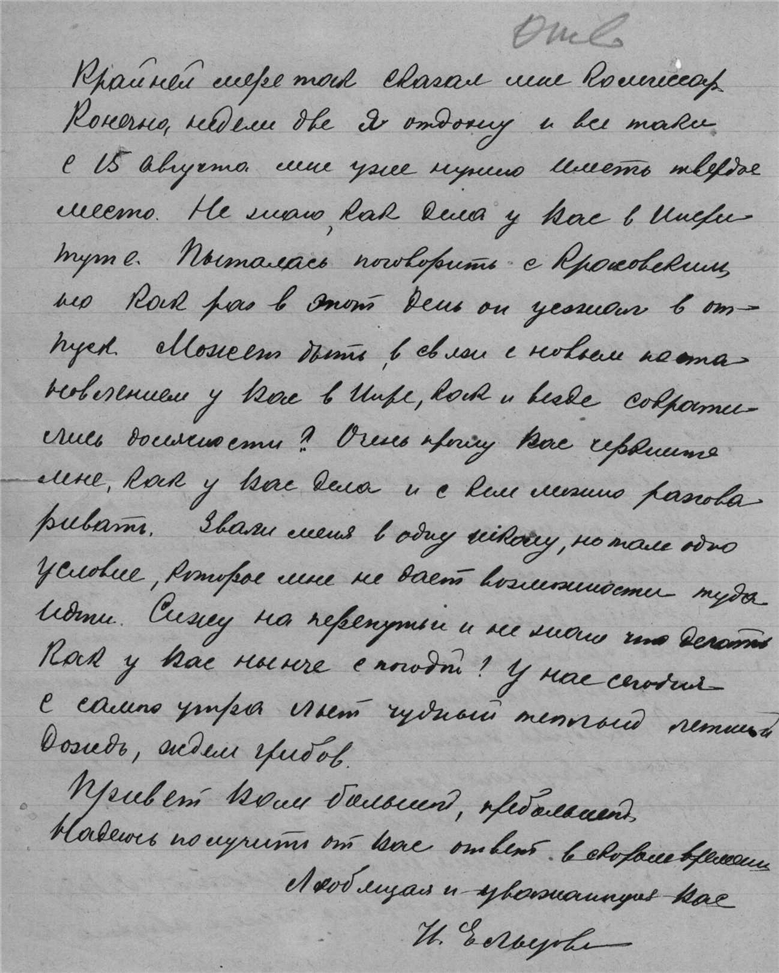 Отв
Крайней мере так сказал мне комиссар.
Конечно, недели две я отдохну и все таки
с 15 августа мне уже нужно иметь твердое
место. Не знаю, как дела у Вас в Инсти-
туте. Пыталась поговорить с Кроховским,
но как раз в этот день он уезжал в от-
пуск. Может быть, в связи с новым поста-
новлением у Вас в Инст, как и везде сократи-
лись должности? Очень прошу Вас черкните
мне, как у Вас дела и с кем можно разгова-
ривать. Звали меня в одну школу, но там одно
условие, которое мне не дает возможности туда
идти. Сижу на перепутьи и не знаю что делать
Как у Вас нынче с погодой? У нас сегодня
с самого утра льет чудный теплый летний
дождь, ждем грибов.
Привет Вам большой, пребольшой.
Надеюсь получить от Вас ответ в скором времени
Любящая и уважающая Вас
Н. Ельцова